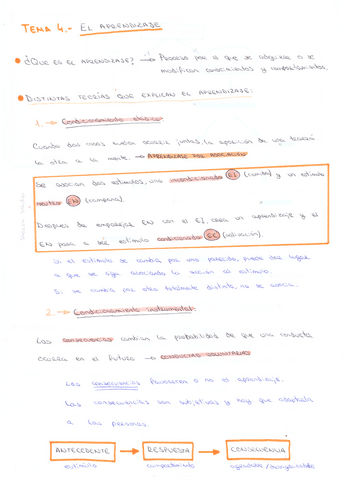 TEMA 4.- EL APRENDIZAJE
¿QUÉ ES EL APRENDIZAJE? → Proceso por el que se adquiere o se
modifican conocimientos y comportamientos.
DISTINTAS TEORÍAS QUE EXPLICAN EL APRENDIZAJE:
1. → Condicionamiento clásico
Cuando dos cosas suelen ocurrir juntas, la aparición de una traerá
la otra a la mente. → APRENDIZAJE POR ASOCIACIÓN
Se asocian dos estímulos, uno incondicionado EI (comida) y un estímulo
neutro EN (campana).
Después de emparejar EN con el EI, crea un aprendizaje y el
EN pasa a ser estímulo condicionado EC (salivación).
Si el estímulo se cambia por uno parecido, puede dar lugar
a que se siga asociando la acción al estímulo.
Si se cambia por otro totalmente distinto, no se asocia.
2. → Condicionamiento instrumental
Las consecuencias cambian la probabilidad de que una conducta
ocurra en el futuro → CONDUCTAS VOLUNTARIAS
Las consecuencias favorecen o no el aprendizaje.
Las consecuencias son subjetivas y hay que adaptarla
a las personas.
ANTECEDENTE → RESPUESTA → CONSECUENCIA
estímulo comportamiento agradable/desagradable